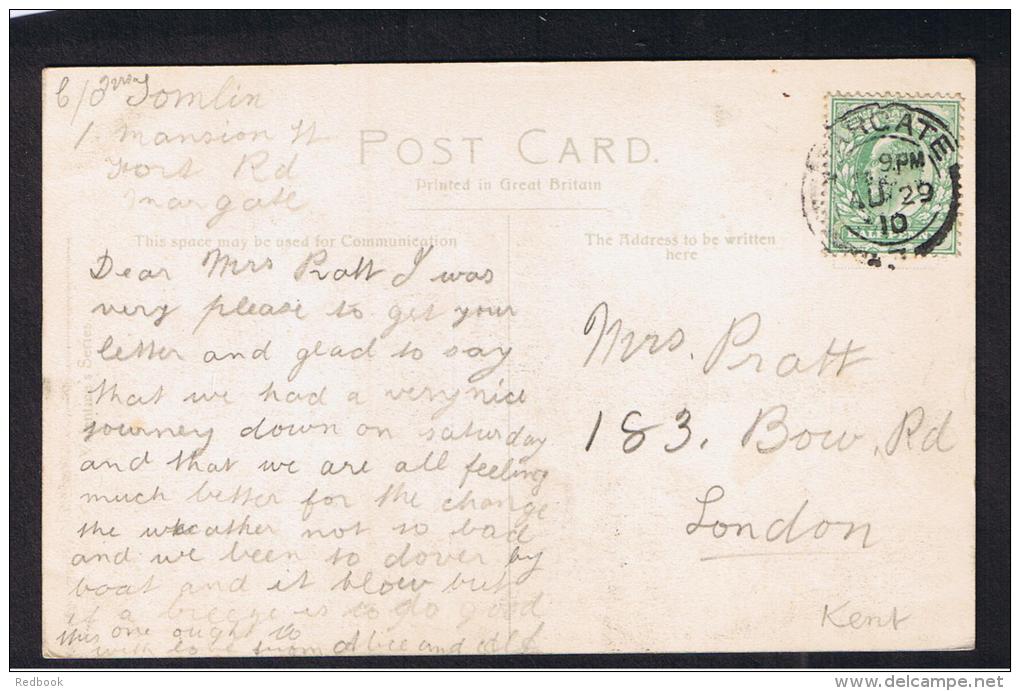 C/o Mrs Tomlin
1 Mansion St
Fort Rd
Margate
POST CARD.
Printed in Great Britain
This space may be used for Communication
The Address to be written
here
ARGATE
9.PM
AU 29
10
HALFPENNY
Dear Mrs Pratt I was
very please to get your
letter and glad to say
that we had a very nice
journey down on saturday
and that we are all feeling
much better for the change
the weather not so bad
and we been to dover by
boat and it blow but
if a breeze is to do good
this one ought to
with love from Alice and Alf
Series
Mrs. Pratt
183. Bow. Rd
London
Kent
Redbook
delcampe.net